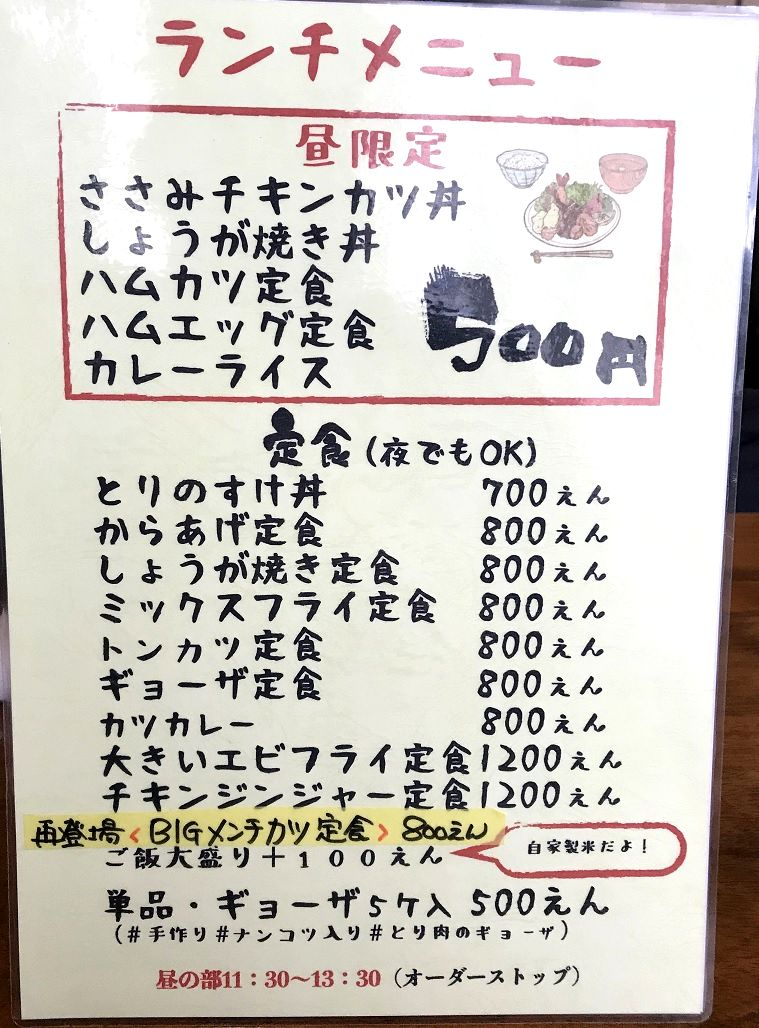 ランチメニュー
昼限定
ささみチキンカツ丼
しょうが焼き丼
ハムカツ定食
ハムエッグ定食
カレーライス
500円
定食(夜でもOK)
とりのすけ丼 700えん
からあげ定食 800えん
しょうが焼き定食 800えん
ミックスフライ定食 800えん
トンカツ定食 800えん
ギョーザ定食 800えん
カツカレー 800えん
大きいエビフライ定食 1200えん
チキンジンジャー定食 1200えん
再登場<BIGメンチカツ定食> 800えん
ご飯大盛り+100えん
自家製米だよ!
単品・ギョーザ5ケ入 500えん
(#手作り#ナンコツ入り#とり肉のギョーザ)
昼の部11:30〜13:30(オーダーストップ)